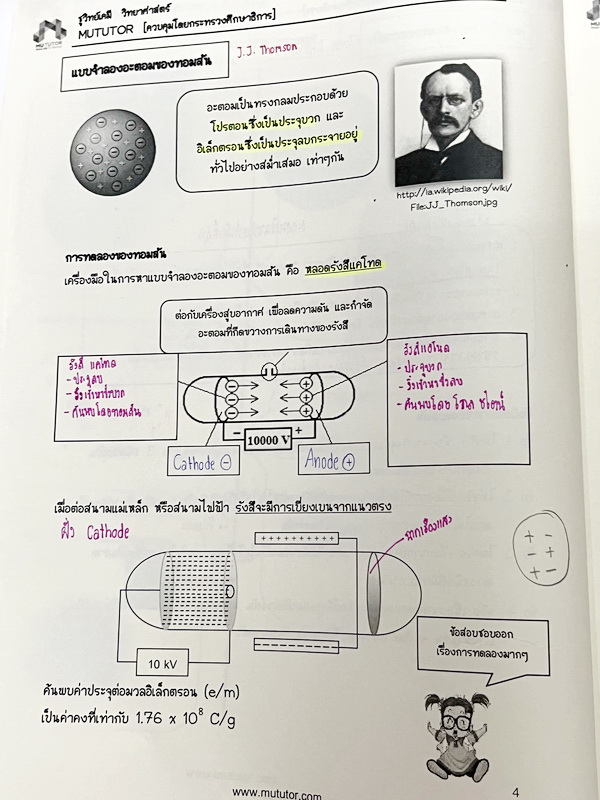 ชูวิทย์เคมี วิทยาศาสตร์
MUTUTOR [ควบคุมโดยกระทรวงศึกษาธิการ]
MUTUTOR
แบบจำลองอะตอมของทอมสัน
J.J. Thomson
อะตอมเป็นทรงกลมประกอบด้วย
โปรตอนซึ่งเป็นประจุบวก และ
อิเล็กตรอนซึ่งเป็นประจุลบกระจายอยู่
ทั่วไปอย่างสม่ำเสมอ เท่าๆกัน
http://ia.wikipedia.org/wiki/
File:JJ_Thomson.jpg
การทดลองของทอมสัน
เครื่องมือในการหาแบบจำลองอะตอมของทอมสัน คือ หลอดรังสีแคโทด
ต่อกับเครื่องสูบอากาศ เพื่อลดความดัน และกำจัด
อะตอมที่กีดขวางการเดินทางของรังสี
รังสี แคโทด
- ประจุลบ
- วิ่งเข้าหาขั้วบวก
- ค้นพบโดยทอมสัน
รังสีแอโนด
- ประจุบวก
- วิ่งเข้าหาขั้วลบ
- ค้นพบโดย
10000 V
Cathode ⊖
Anode ⊕
เมื่อต่อสนามแม่เหล็ก หรือสนามไฟฟ้า รังสีจะมีการเบี่ยงเบนจากแนวตรง
ฝั่ง Cathode
ฉากเรืองแสง
10 kV
ข้อสอบชอบออก
เรื่องการทดลองมากๆ
ค้นพบค่าประจุต่อมวลอิเล็กตรอน (e/m)
เป็นค่าคงที่เท่ากับ 1.76 x 10⁸ C/g
www.mututor.com
4